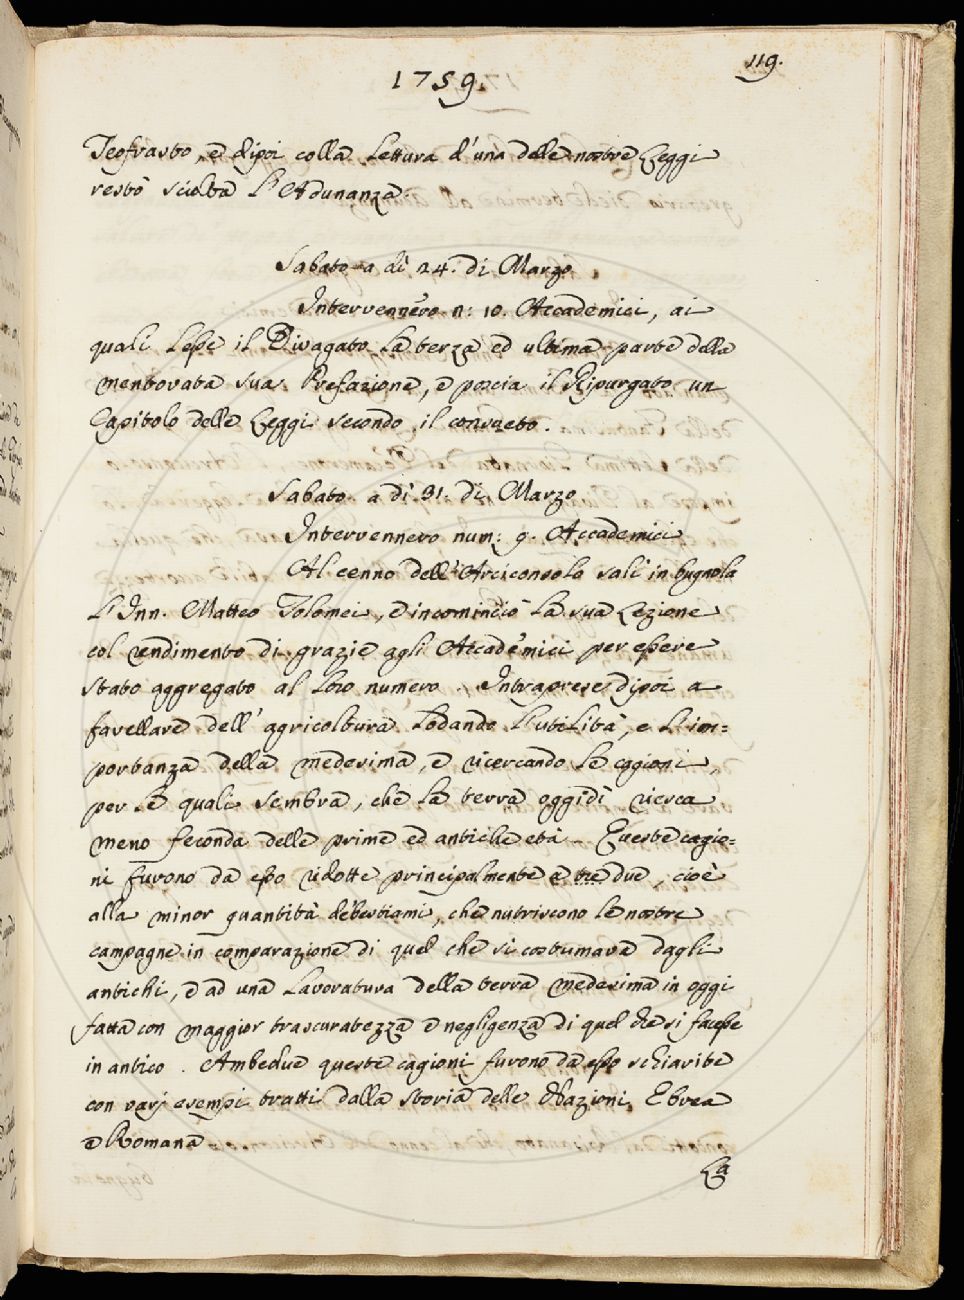 119.
1759.
Teofrasto, e dipoi colla Lettura d'una delle nostre Leggi
restò sciolta l'Adunanza.
Sabato a dì 24. di Marzo
Intervennero n: 10. Accademici, ai
quali lesse il Divagato la terza ed ultima parte della
mentovata sua Prefazione, e poscia il Ripurgato un
Capitolo delle Leggi secondo il consueto.
Sabato a dì 31. di Marzo
Intervennero num: 9. Accademici
Al cenno dell'Arciconsolo salì in bugnola
l'Inn. Matteo Tolomei, e incominciò la sua Lezione
col rendimento di grazie agli Accademici per essere
stato aggregato al loro numero. Intraprese dipoi a
favellare dell'agricoltura lodando l'utilità, e l'im=
portanza della medesima, e ricercando le cagioni,
per le quali sembra, che la terra oggidì riesca
meno feconda delle prime ed antiche età. Queste cagio=
ni furono da esso ridotte principalmente a due, cioè
alla minor quantità de'bestiami, che nutriscono le nostre
campagne in comparazione di quel che si costumava dagli
antichi, e ad una lavoratura della terra medesima in oggi
fatta con maggior trascuratezza e negligenza di quel che si facesse
in antico. Ambedue queste cagioni furono da esso schiarite
con varj esempi tratti dalla storia delle Nazioni Ebrea
e Romana
La